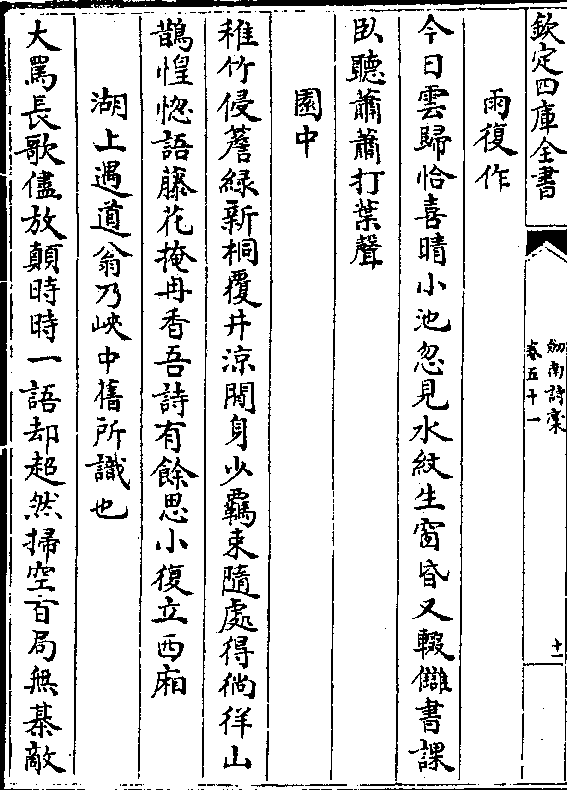 欽定四庫全書
劒南詩稾
卷五十一
十一
雨復作
今日雲歸恰喜晴小池忽見水紋生窗昏又輟讎書課
臥聽蕭蕭打葉聲
園中
稚竹侵簷綠新桐覆井涼閒身少羈束隨處得徜徉山
鵲惶惚語藤花掩冉香吾詩有餘思小復立西廂
湖上遇道翁乃峽中舊所識也
大罵長歌儘放顛時時一語却超然掃空百局無棊敵